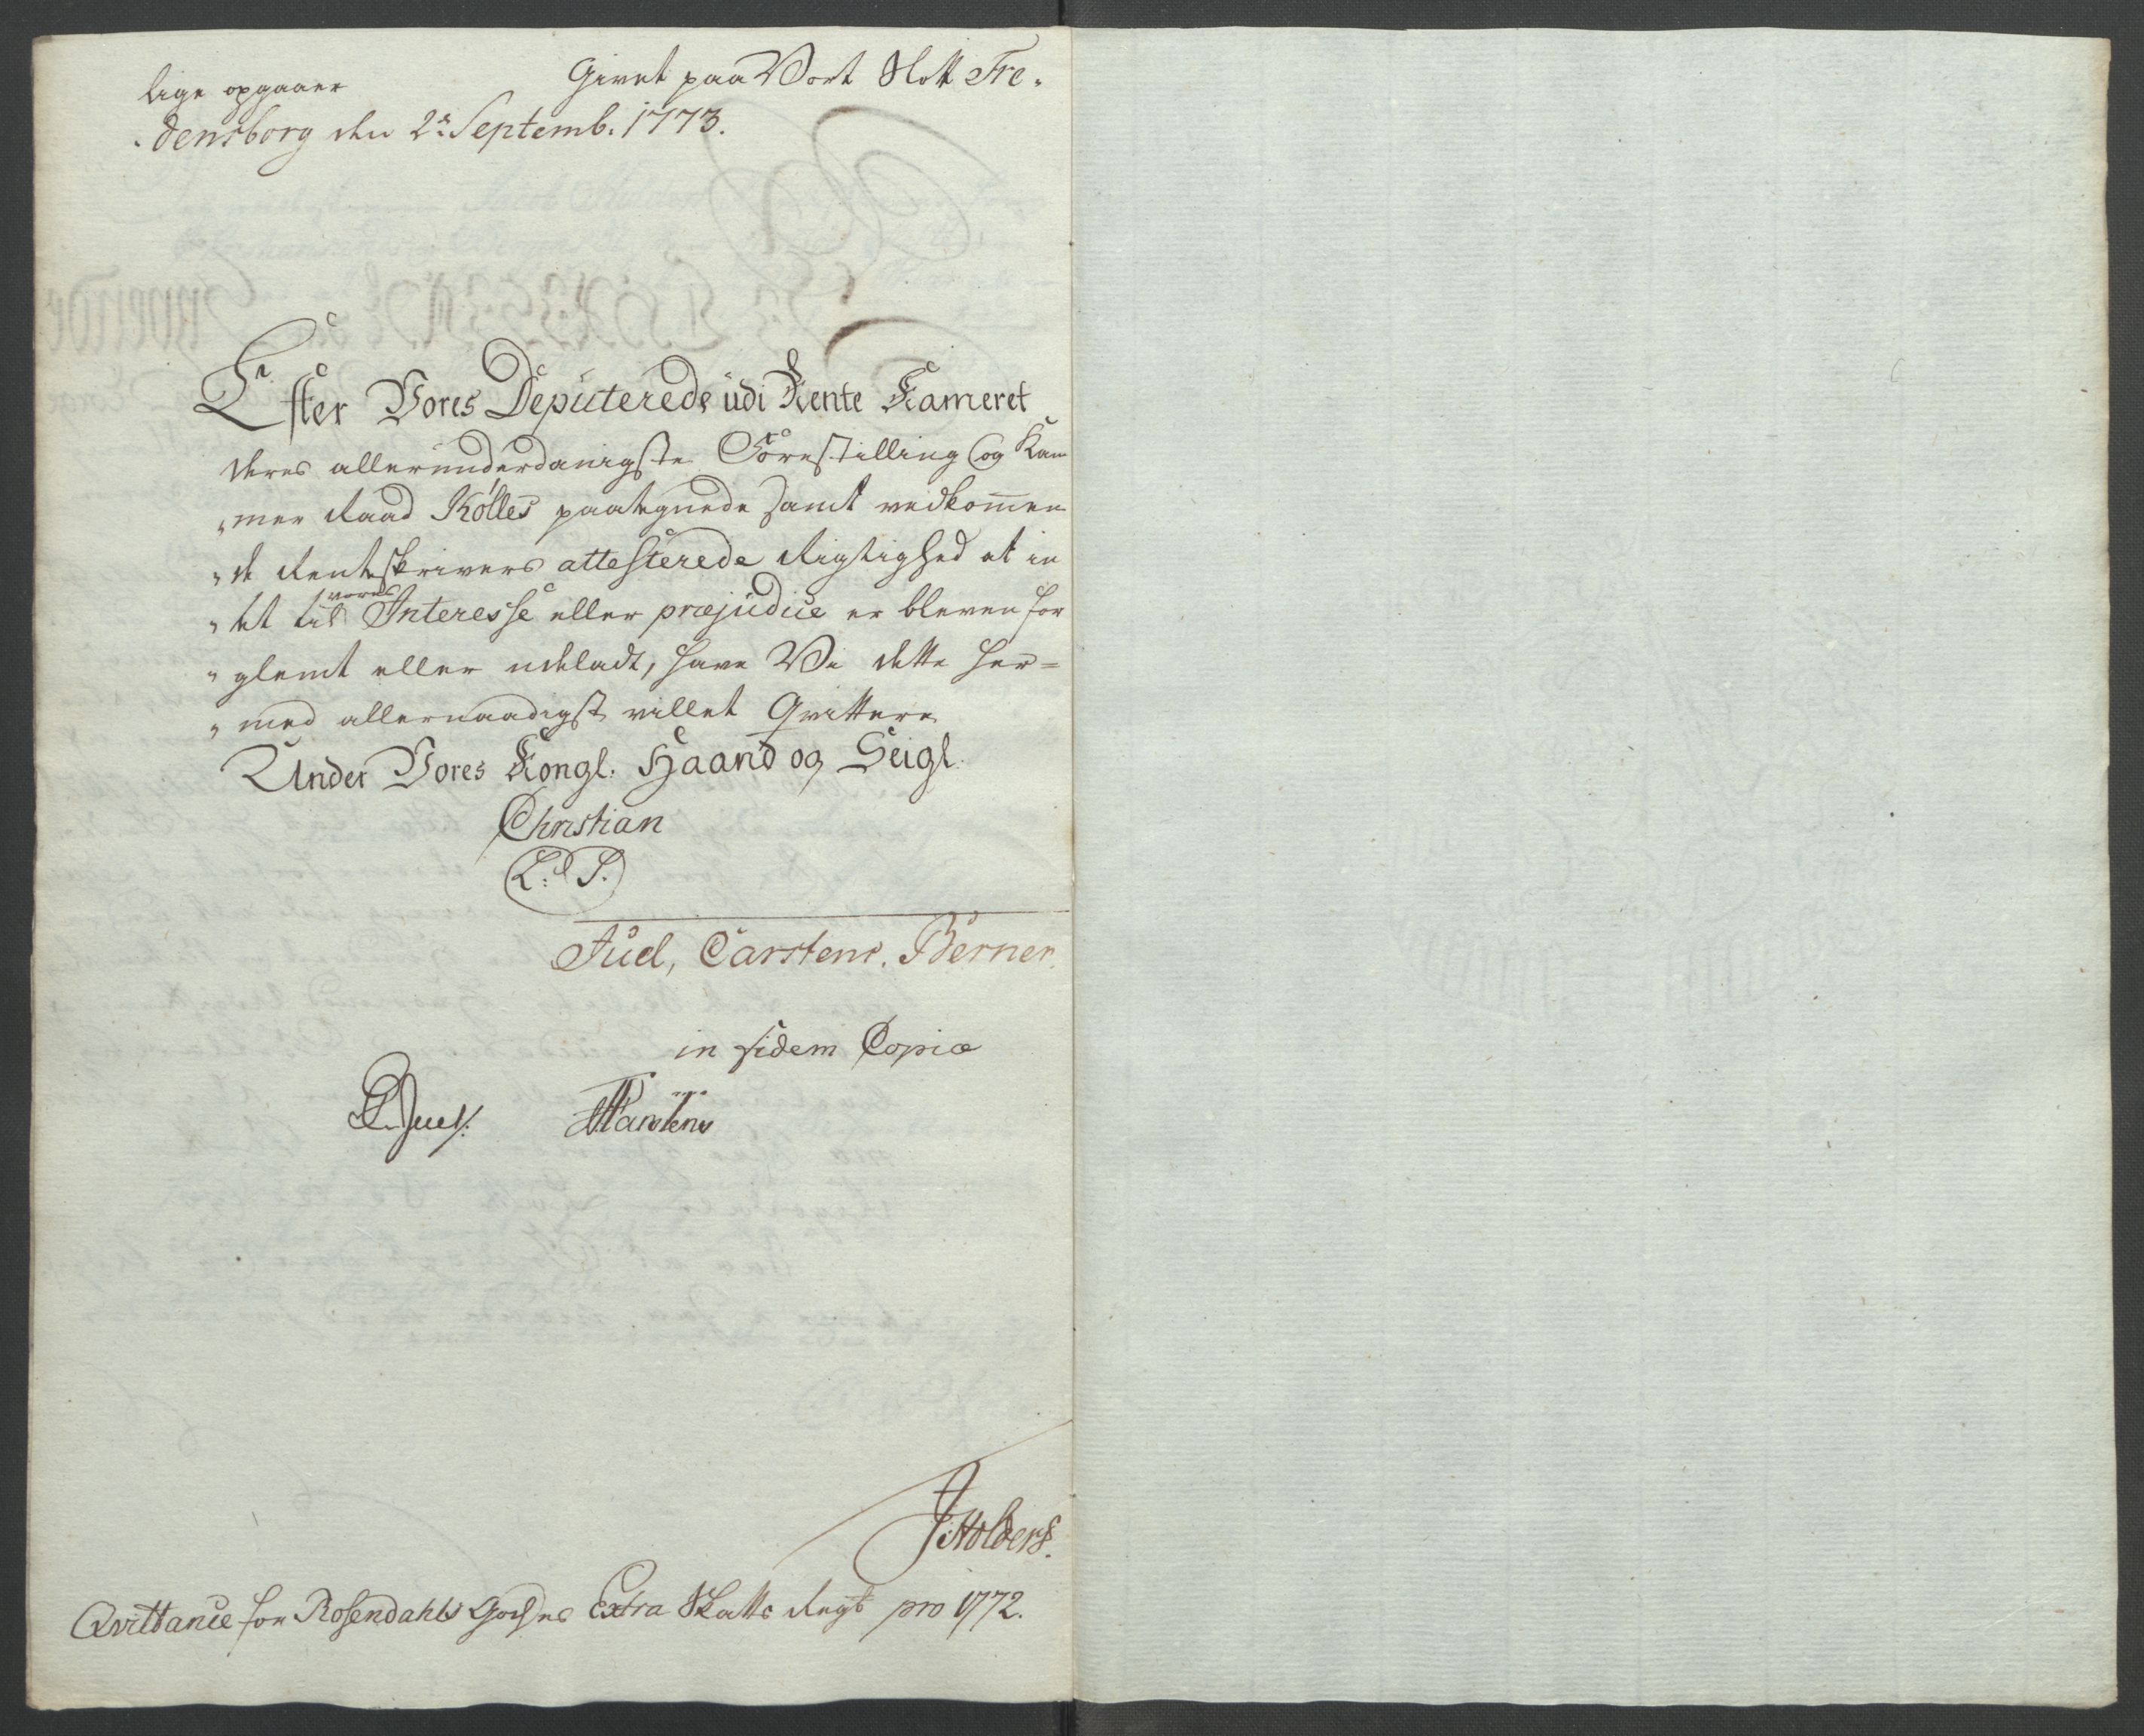 lige opgaaer Givet paa Vort Slott Fre„
„densborg den 2de Septemb. 1773.
Efter Vores Deputerede udi Rente Kameret
deres allerunderdanigste Forestilling og Kam
„mer Raad Kölles paategnede samt vedkommen
„de Renteskrivers attesterede Rigtighed at in
„tet til vores Interesse eller præjudice er bleven for
„glemt eller udeladt, have Vi dette her=
„med allernaadigst villet Qvittere
Under Vores Kongl. Haand og Seigl.
Christian
L. S.
Juel, Carstens. Berner.
in fidem Copiæ
Juel. Carstens
Holders.
Qvittance for Rosendahls Godses Extra Skatts Regb pro 1772.